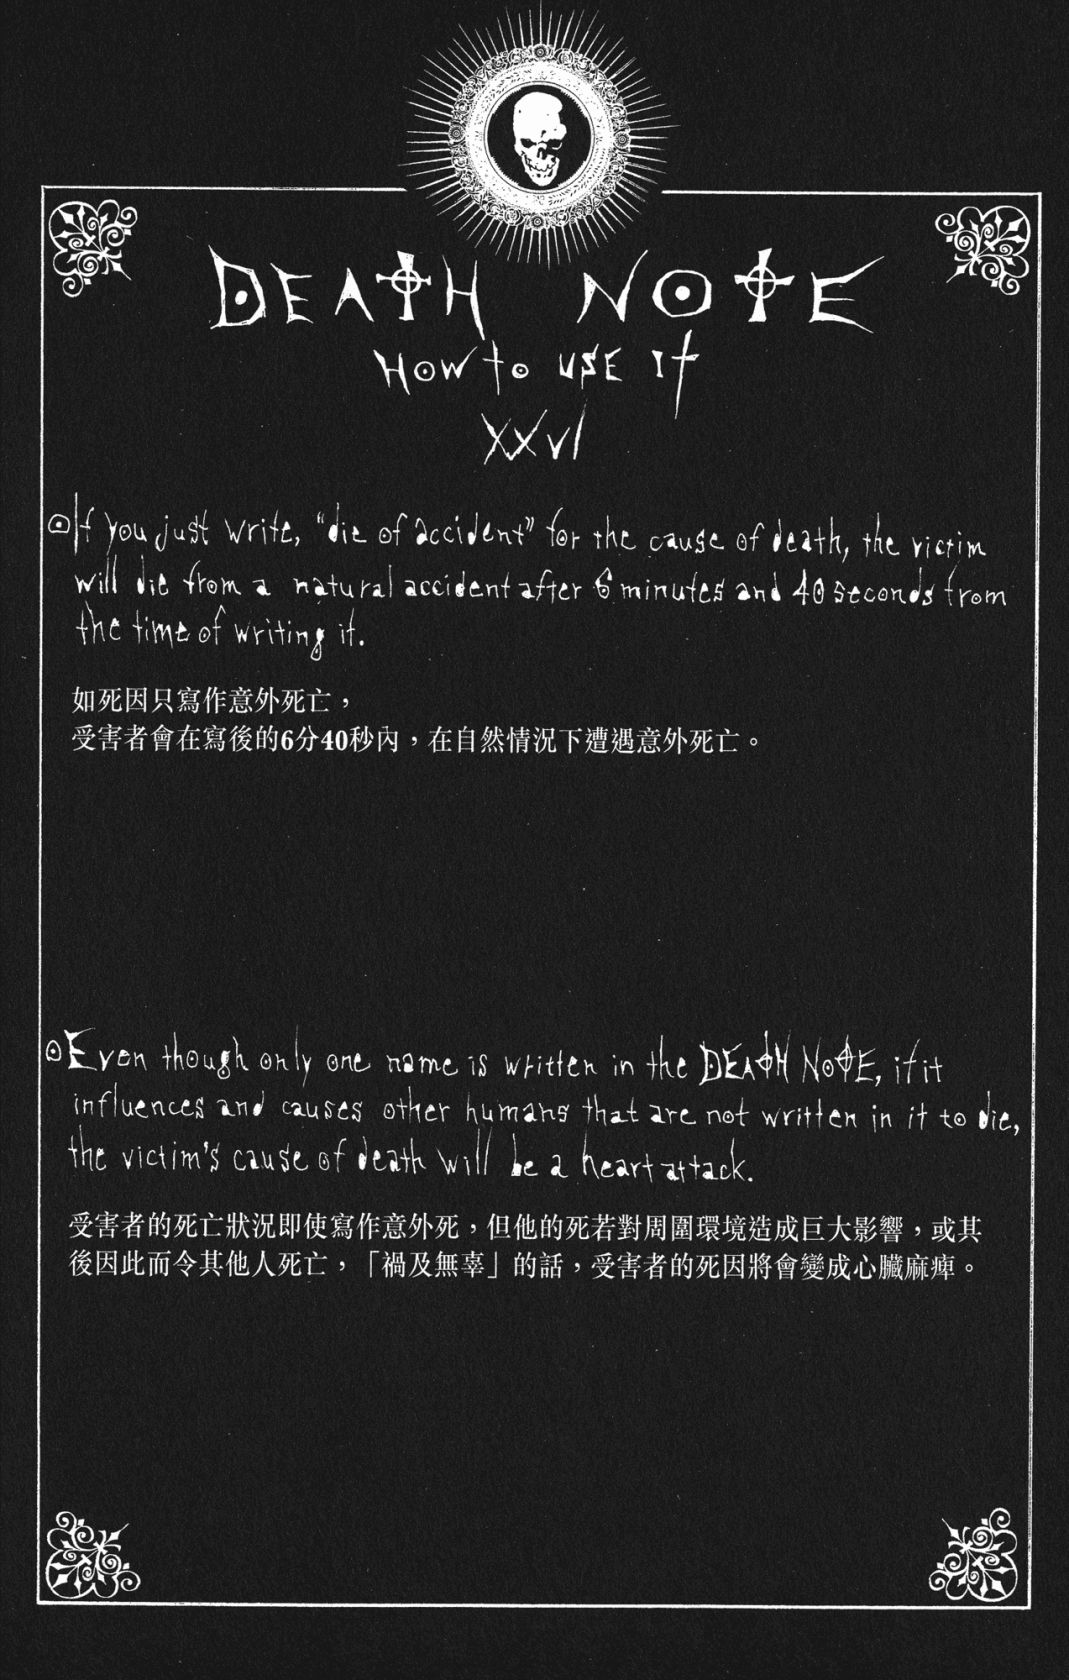 DEATH NOTE
HOW to USE It
XXVI
If you just write, “die of accident” for the cause of death, the victim
will die from a natural accident after 6 minutes and 40 seconds from
the time of writing it.
如死因只寫作意外死亡，
受害者會在寫後的6分40秒內，在自然情況下遭遇意外死亡。
Even though only one name is written in the DEATH NOTE, if it
influences and causes other humans that are not written in it to die,
the victim's cause of death will be a heart attack.
受害者的死亡狀況即使寫作意外死，但他的死若對周圍環境造成巨大影響，或其
後因此而令其他人死亡，「禍及無辜」的話，受害者的死因將會變成心臟麻痺。